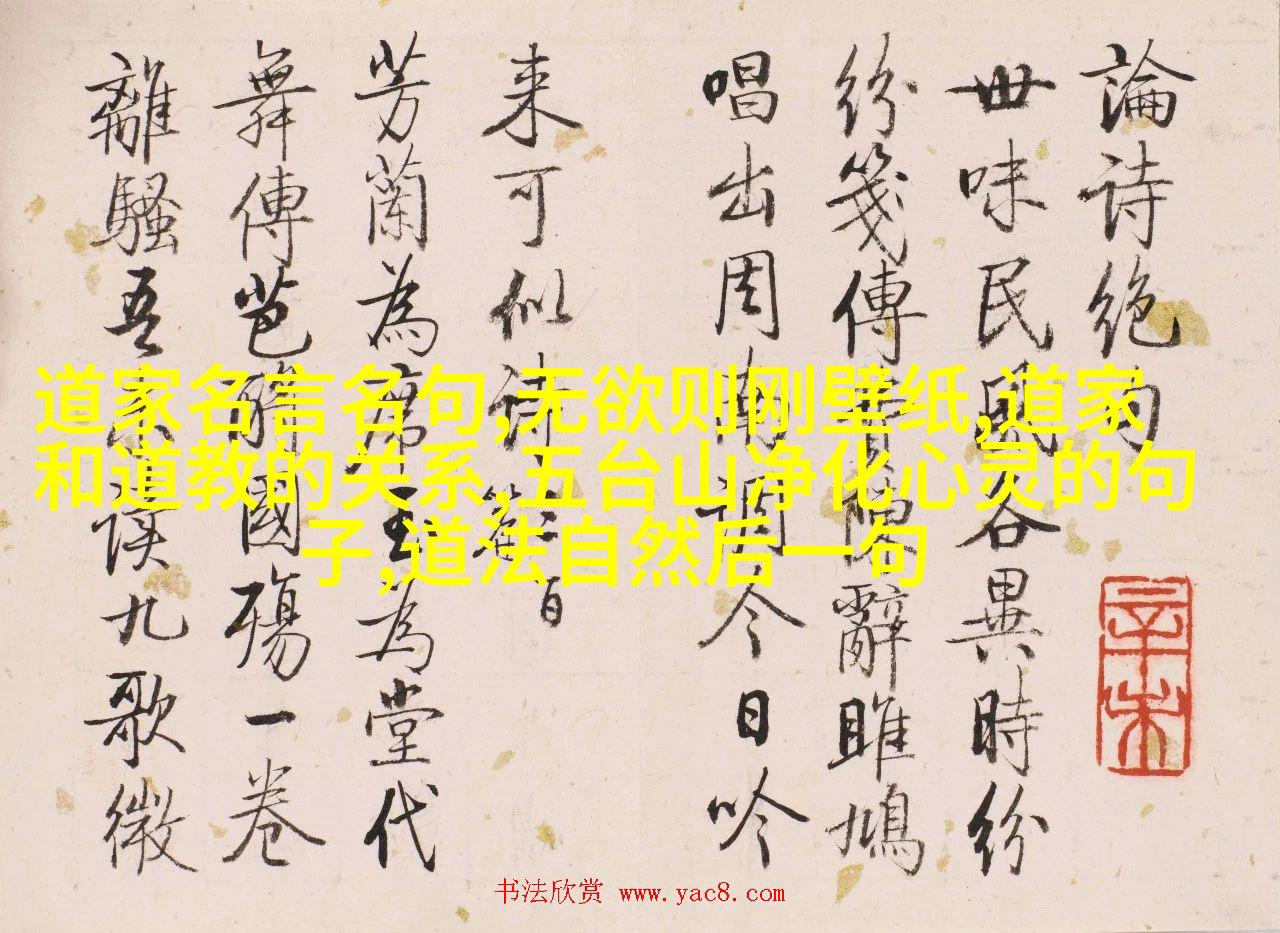 論诗绝句
世味民風各異時紛
紛箋傳辭雎鳩
唱出周南調今日吟
来可似诗
芳蘭為席玉為堂代
舞傳芭醉國殤一卷
離騷吾讀九歌微
辛未
道家名言名句,无欲则刚壁纸,道家
和道教的关系,五台山净化心灵的句
子,道法自然后一句
书法欣赏 www.yac8.com